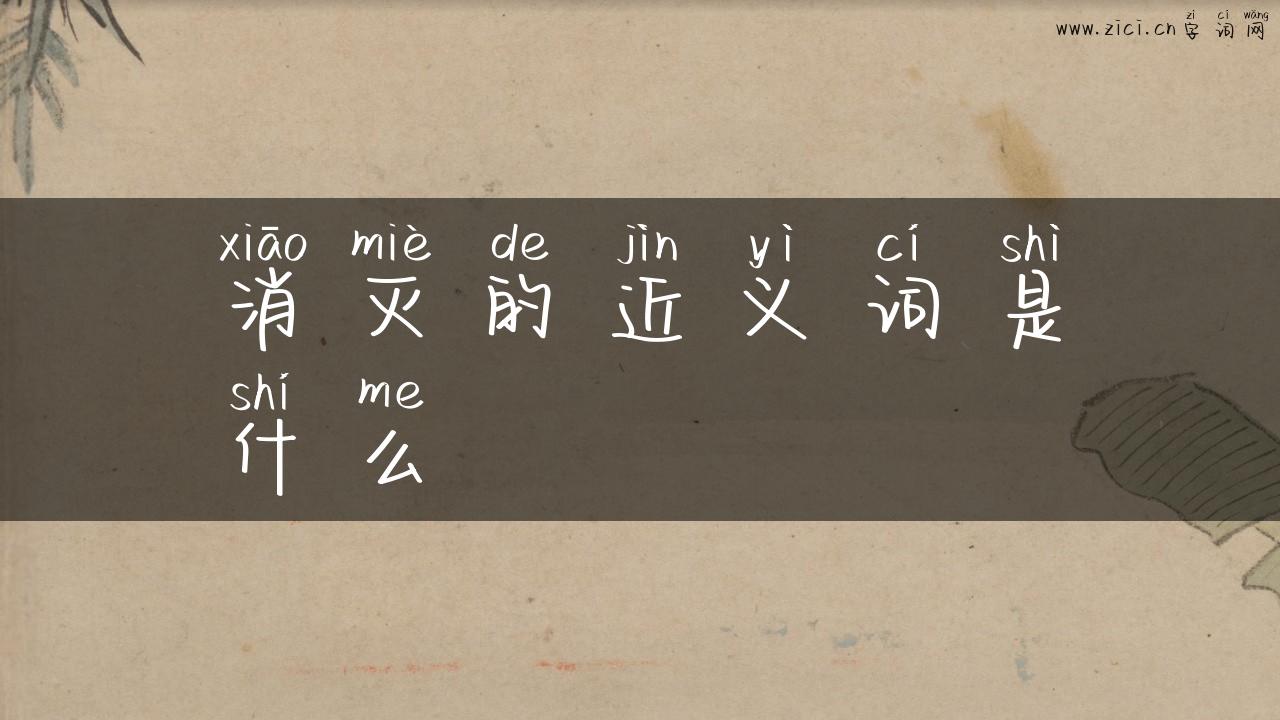 zì cí wǎng
www.zici.cn 字词网
xiāo miè de jìn yì cí shì
消灭的近义词是
shí me
什么